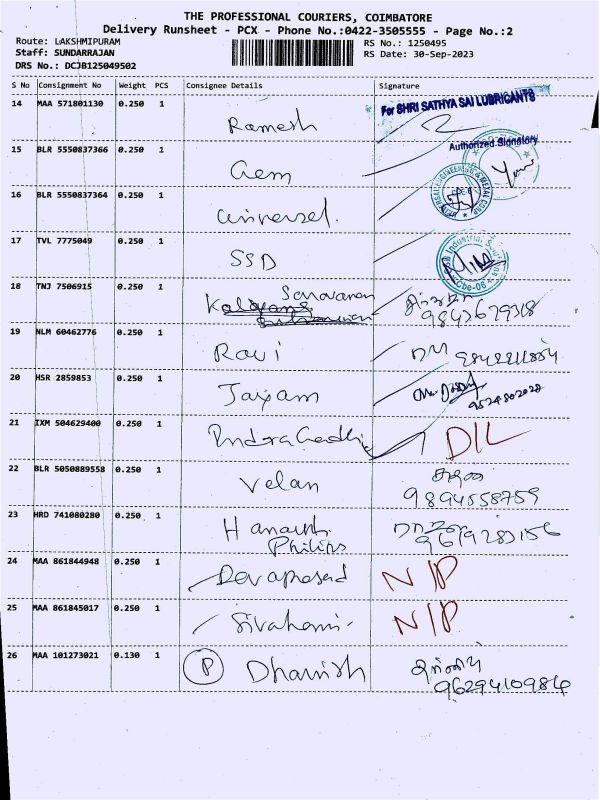 THE PROFESSIONAL COURIERS, COIMBATORE
Delivery Runsheet - PCX - Phone No.:0422-3505555 - Page No.:2
Route: LAKSHMIPURAM
RS No.: 1250495
Staff: SUNDARRAJAN
RS Date: 30-Sep-2023
DRS No.: DCJB125049502
S No Consignment No Weight PCS Consignee Details Signature
14 MAA 571801130 0.250 1 Ramesh
For SHRI SATHYA SAI LUBRICANTS
Authorized Signatory
15 BLR 5550837366 0.250 1 Gem
16 BLR 5550837364 0.250 1 Universal.
17 TVL 7775049 0.250 1 SSD
18 TNJ 7506915 0.250 1 Saravanan
9843679318
19 NLM 60462776 0.250 1 Ravi
20 HSR 2859853 0.250 1 Jayam
21 IXM 504629400 0.250 1 D/L
22 BLR 5050889558 0.250 1 Velan
9894558759
23 HRD 741080280 0.250 1
Philips
24 MAA 861844948 0.250 1 Devaprasad N/P
25 MAA 861845017 0.250 1 Sivahami- N/P
26 MAA 101273021 0.130 1 P Dhanish
9629410984